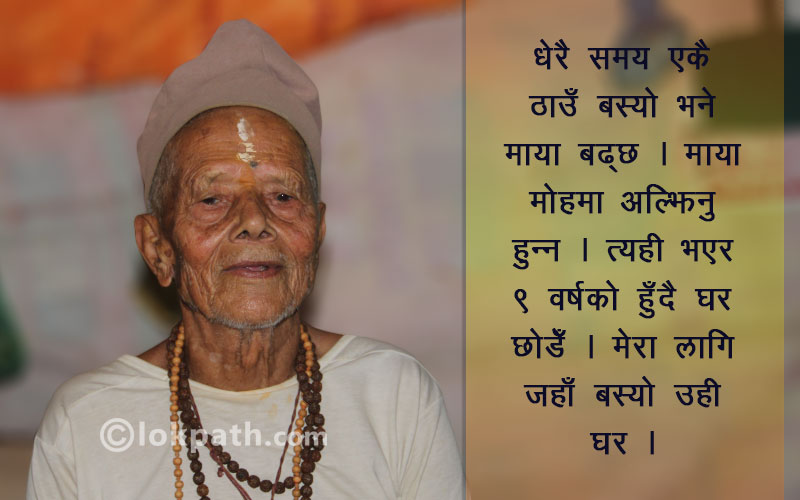 धेरै समय एकै
ठाउँ बस्यो भने
माया बढ्छ । माया
मोहमा अल्झिनु
हुन्न । त्यही भएर
९ वर्षको हुँदै घर
छोडेँ । मेरा लागि
जहाँ बस्यो उही
घर ।
©lokpath.com